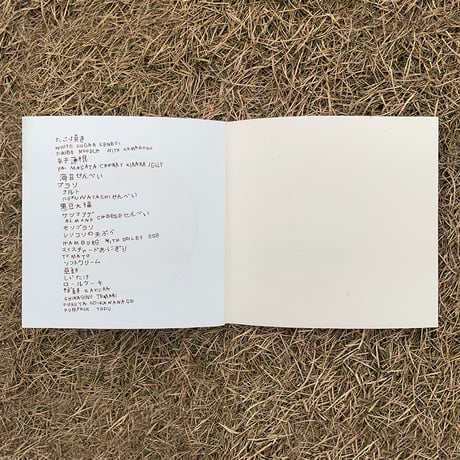 たこ焼き
WHITE SUGAR SENBEI
NOODLE WITH KAMABOKO
辛子蓮根
YAMAGATA CHERRY KIRARA JELLY
海苔せんべい
プラリ
ナルト
NORUWATASHIせんべい
黒豆大福
サツマアゲ
ALMOND CHEEESEせんべい
モンブラン
レンコンの天ぷら
HAMBURG WITH BOILED EGG
スイスチャードおにぎり
TOMATO
ソフトクリーム
豆餅
しいたけ
ロールケーキ
SAKURA
SHINAGINO TEMARI
SHIKAWANAGO
PUMPKIN TOFU